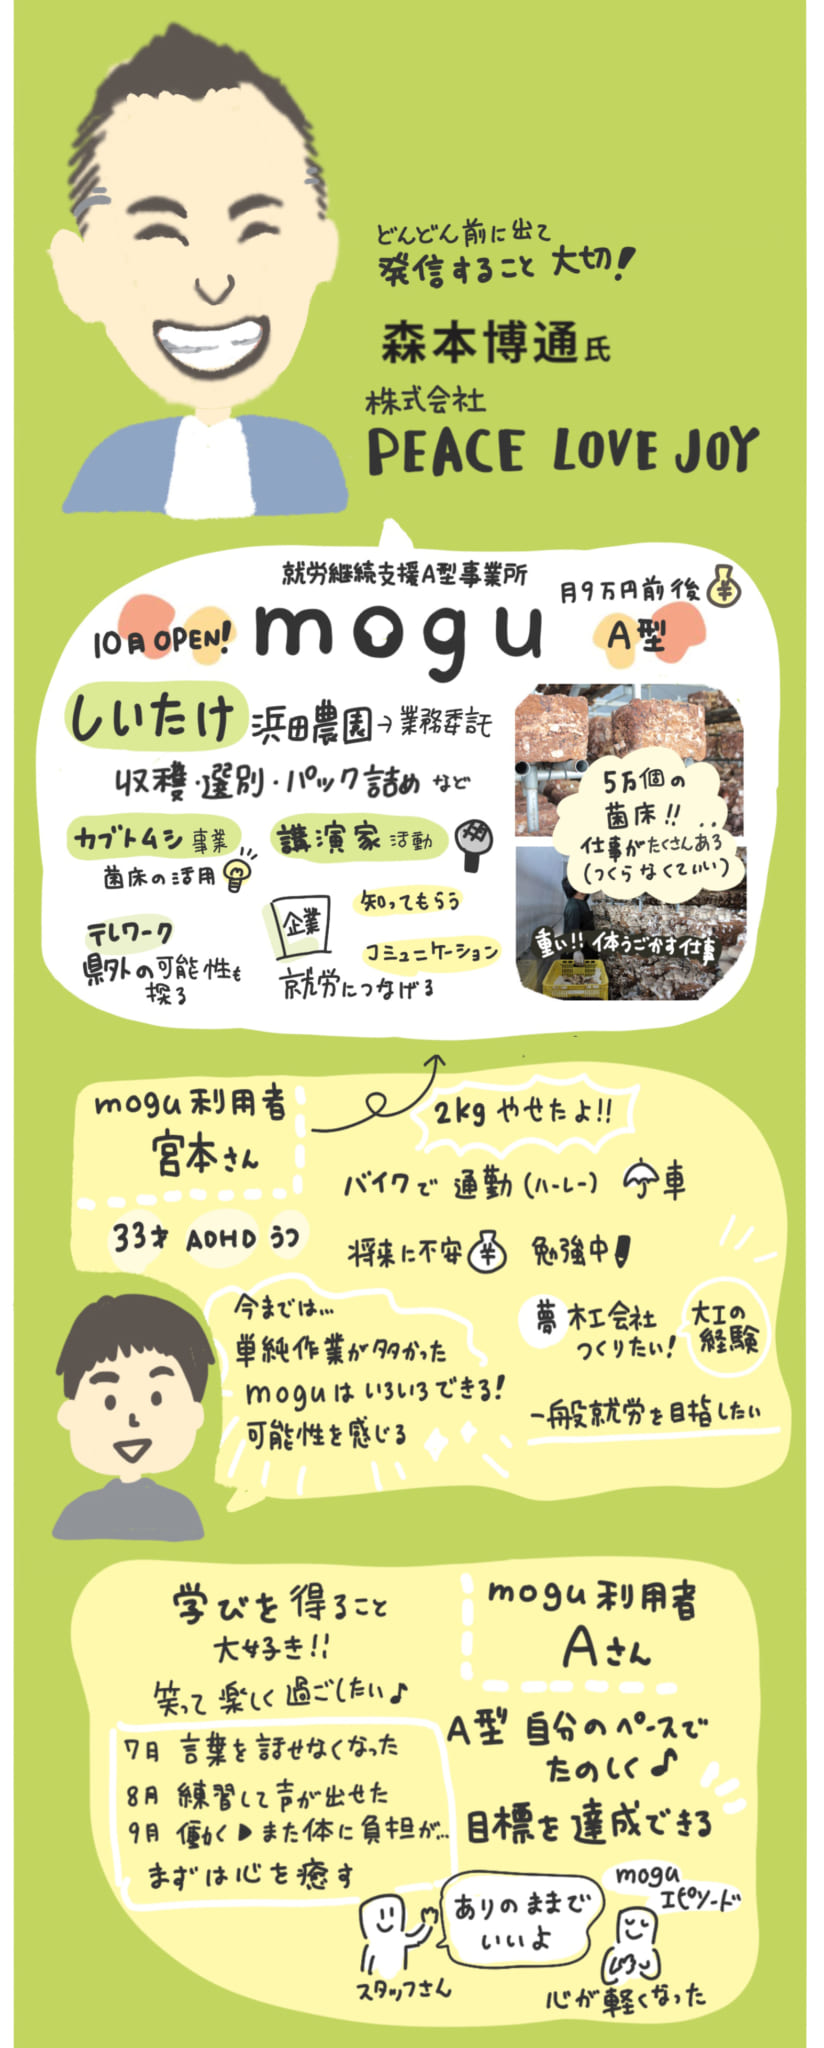 どんどん前に出て
発信すること 大切!
森本博通氏
株式会社
PEACE LOVE JOY
就労継続支援A型事業所
10月OPEN!
mogu
月9万円前後 ¥
A型
しいたけ 浜田農園→業務委託
収穫・選別・パック詰め など
カブトムシ 事業
菌床の活用
テレワーク
県外の可能性も
探る
講演家 活動
企業
知ってもらう
コミュニケーション
就労につなげる
5万個の
菌床!!
仕事がたくさんある
(つくらなくていい)
重い!! 体うごかす仕事
mogu利用者
宮本さん
2kg やせたよ!!
バイクで 通勤(ハーレー) 車
33才 ADHD うつ
将来に不安 ¥ 勉強中
今までは...
単純作業が多かった
moguは いろいろできる!
可能性を感じる
夢 木工会社
つくりたい!
大工の
経験
一般就労を目指したい
学びを得ること
大好き!!
笑って 楽しく 過ごしたい♪
7月 言葉を話せなくなった
8月 練習して声が出せた
9月 働く▶また体に負担が...
まずは心を癒す
mogu利用者
Aさん
A型 自分のペースで
たのしく♪
目標を達成できる
mogu
エピソード
ありのままで
いいよ
スタッフさん
心が軽くなった